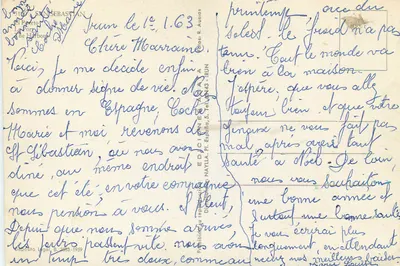 bonne
année
bonne
santé
Coche
Marie
SEBASTIAN
Irun le 1.1.63
Chère Marraine
Voici, je me décide enfin
à donner signe de vie. Nous
sommes en Espagne, Coche
Marie et moi, revenons de
St Sébastian, où nous avons
dîné, au même endroit
que cet été, en votre compagnie
nous pensions à vous. Il pleut,
Depuis que nous sommes arrivés,
les jours passent vite, nous avons
un temps très doux, comme au
printemps, avec du
soleil. le froid n'a pas
tenu. Tout le monde va
bien à la maison.
J'espère, que vous allez
toujours bien. et que votre
genoux ne vous fait pas
mal, après avoir tant
sauté à Noël. De loin
nous vous souhaitons
une bonne année et
surtout une bonne santé
Je vous écrirai plus
longuement, en attendant
recevez nos meilleurs baisers